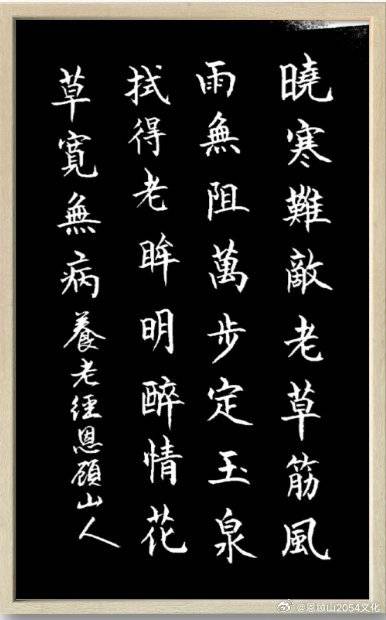 曉寒難敵老草筋風
雨無阻萬步定玉泉
拭得老眸明醉情花
草寬無病養老經恩頤山人
@恩頤山2054文化